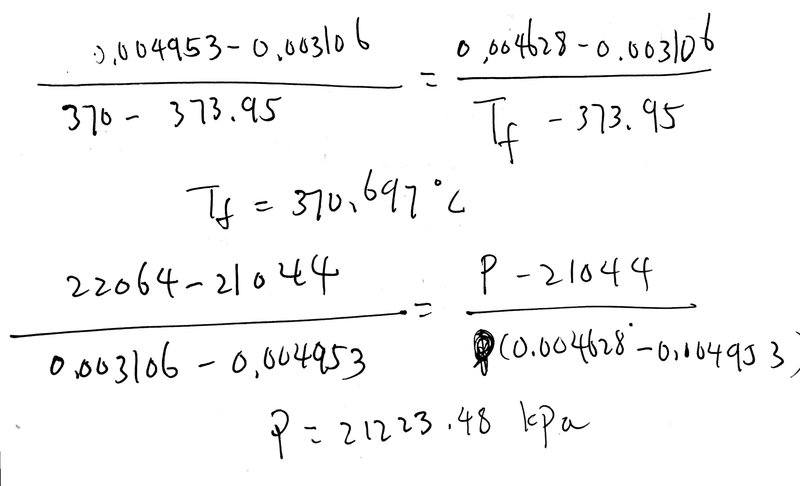 0.004953 - 0.003106 = 0.004628 - 0.003106
370 - 373.95 T_f - 373.95
T_f = 370.697 °C
22064 - 21044 = P - 21044
0.003106 - 0.004953 (0.004628 - 0.004953)
P = 21223.48 kpa